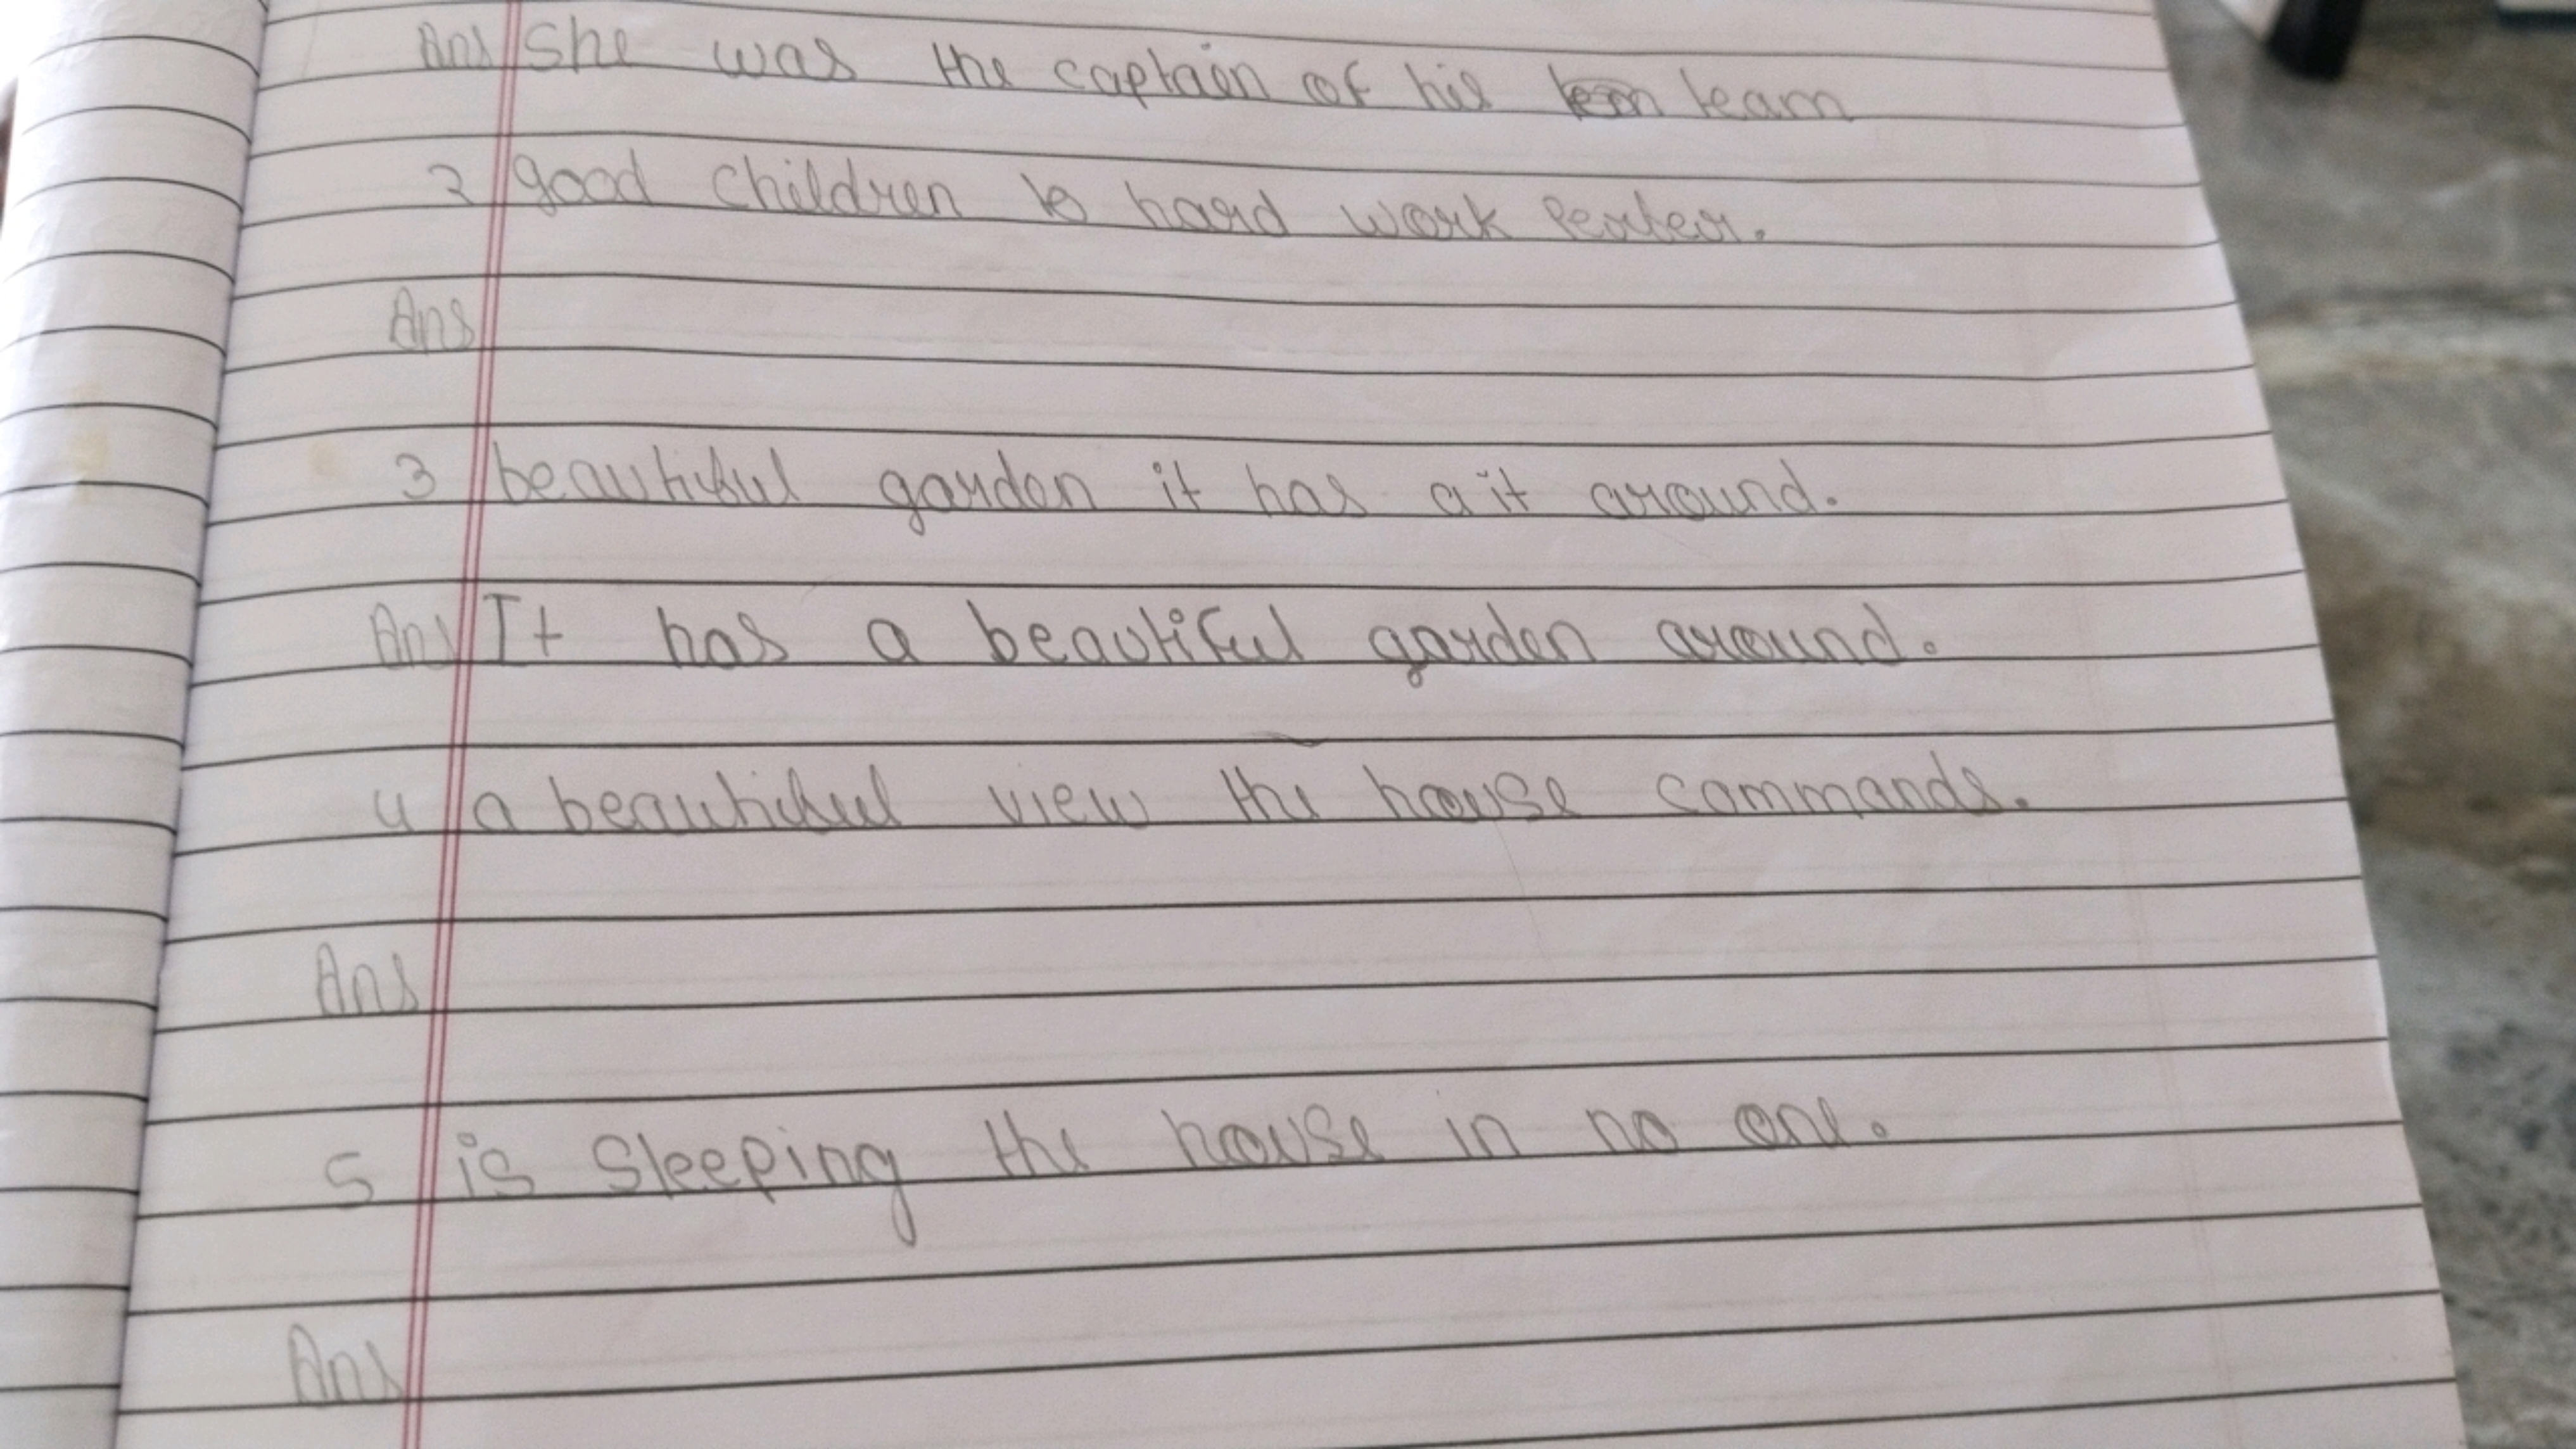 Ans She was the captain of his team
2 good children to hard work
Ans
3 beautiful garden it has a it around.
Ans It has a beautiful garden around.
4 a beautiful view the house commands.
Ans
5 is sleeping the house in no one.
Ans